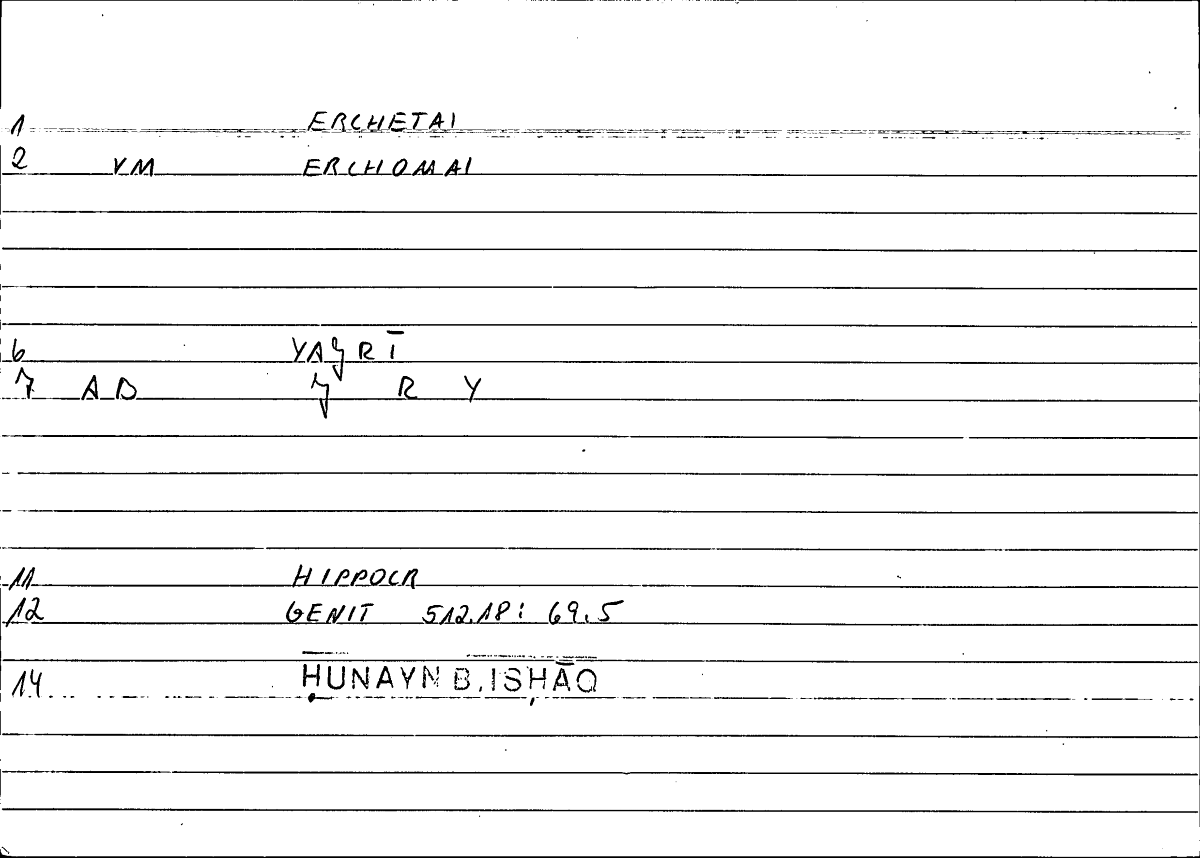 1 ERCHETAI
2 VM ERCHOMAI
6 YAǦRĪ
7 AB Ǧ R Y
11 HIPPOCR
12 GENIT 512.18: 69.5
14 ḤUNAYN B. ISḤĀQ